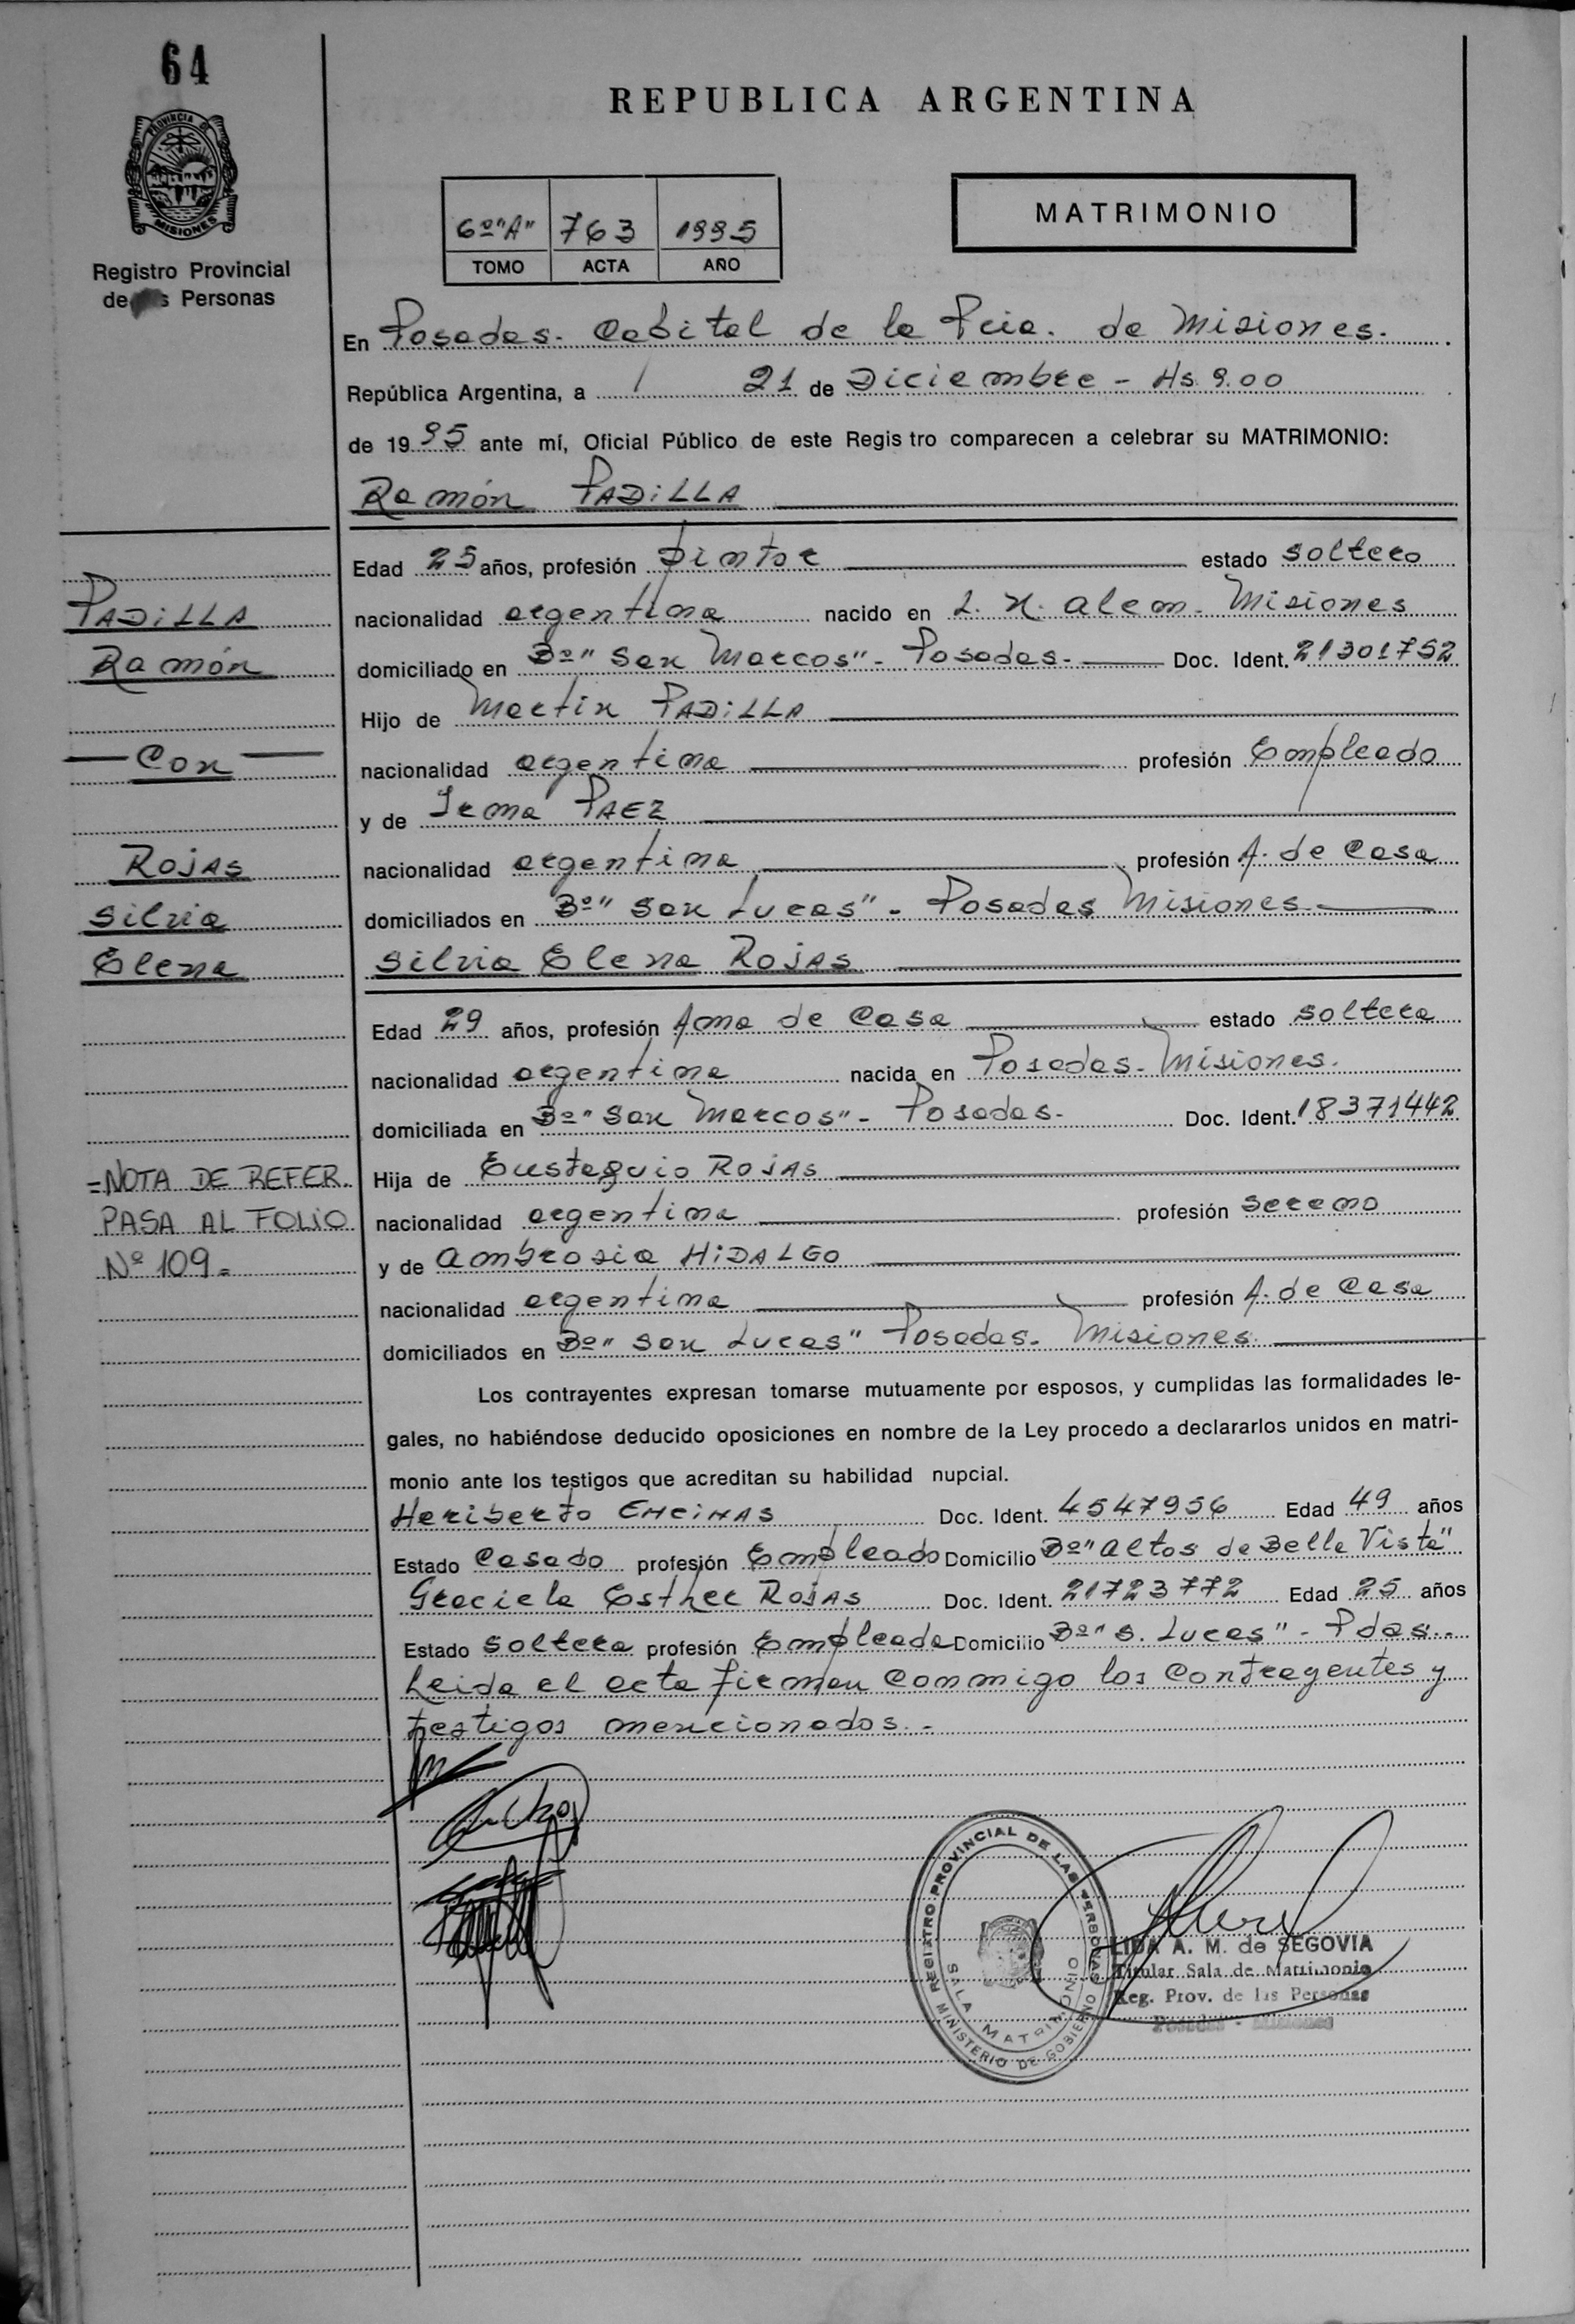 64
REPUBLICA ARGENTINA
PROVINCIA DE
MISIONES
Registro Provincial
de Personas
6º"A" 763 1995
TOMO ACTA AÑO
MATRIMONIO
En Posadas. Capital de la Pcia. de Misiones.
República Argentina, a / 21 de Diciembre - Hs 9.00
de 1995 ante mí, Oficial Público de este Regis tro comparecen a celebrar su MATRIMONIO:
Ramón PADILLA
Edad 25 años, profesión pintor estado soltero
nacionalidad argentina nacido en L. N. Alem - Misiones
domiciliado en Bº "San Marcos" - Posadas. - Doc. Ident. 21301752
Hijo de Martin PADILLA
nacionalidad argentina profesión Empleado
y de Irma PAEZ
nacionalidad argentina profesión A. de Casa
domiciliados en Bº "San Lucas" - Posadas Misiones
Silvia Elena ROJAS
Edad 29 años, profesión Ama de Casa estado soltera
nacionalidad argentina nacida en Posadas - Misiones.
domiciliada en Bº "San Marcos" - Posadas. Doc. Ident. 18371442
Hija de Eustaquio ROJAS
nacionalidad argentina profesión sereno
y de Ambrosia HIDALGO
nacionalidad argentina profesión A. de Casa
domiciliados en Bº "San Lucas" Posadas - Misiones
Los contrayentes expresan tomarse mutuamente por esposos, y cumplidas las formalidades le-
gales, no habiéndose deducido oposiciones en nombre de la Ley procedo a declararlos unidos en matri-
monio ante los testigos que acreditan su habilidad nupcial.
Heriberto ENCINAS Doc. Ident. 4547956 Edad 49 años
Estado Casado profesión Empleado Domicilio Bº "Altos de Bella Vista"
Graciela Esther ROJAS Doc. Ident. 21723772 Edad 25 años
Estado soltera profesión Empleada Domicilio Bº "S. Lucas" - Pdas.-
Leida el acta firman conmigo los contrayentes y
testigos mencionados.-
PADILLA
Ramón
- Con -
ROJAS
Silvia
Elena
=NOTA DE REFER.
PASA AL FOLIO
Nº 109=
REGISTRO PROVINCIAL DE LAS PERSONAS
MINISTERIO DE GOBIERNO
SALA MATRIMONIO
LIDA A. M. de SEGOVIA
Titular Sala de Matrimonio
Reg. Prov. de las Personas
Posadas - Misiones